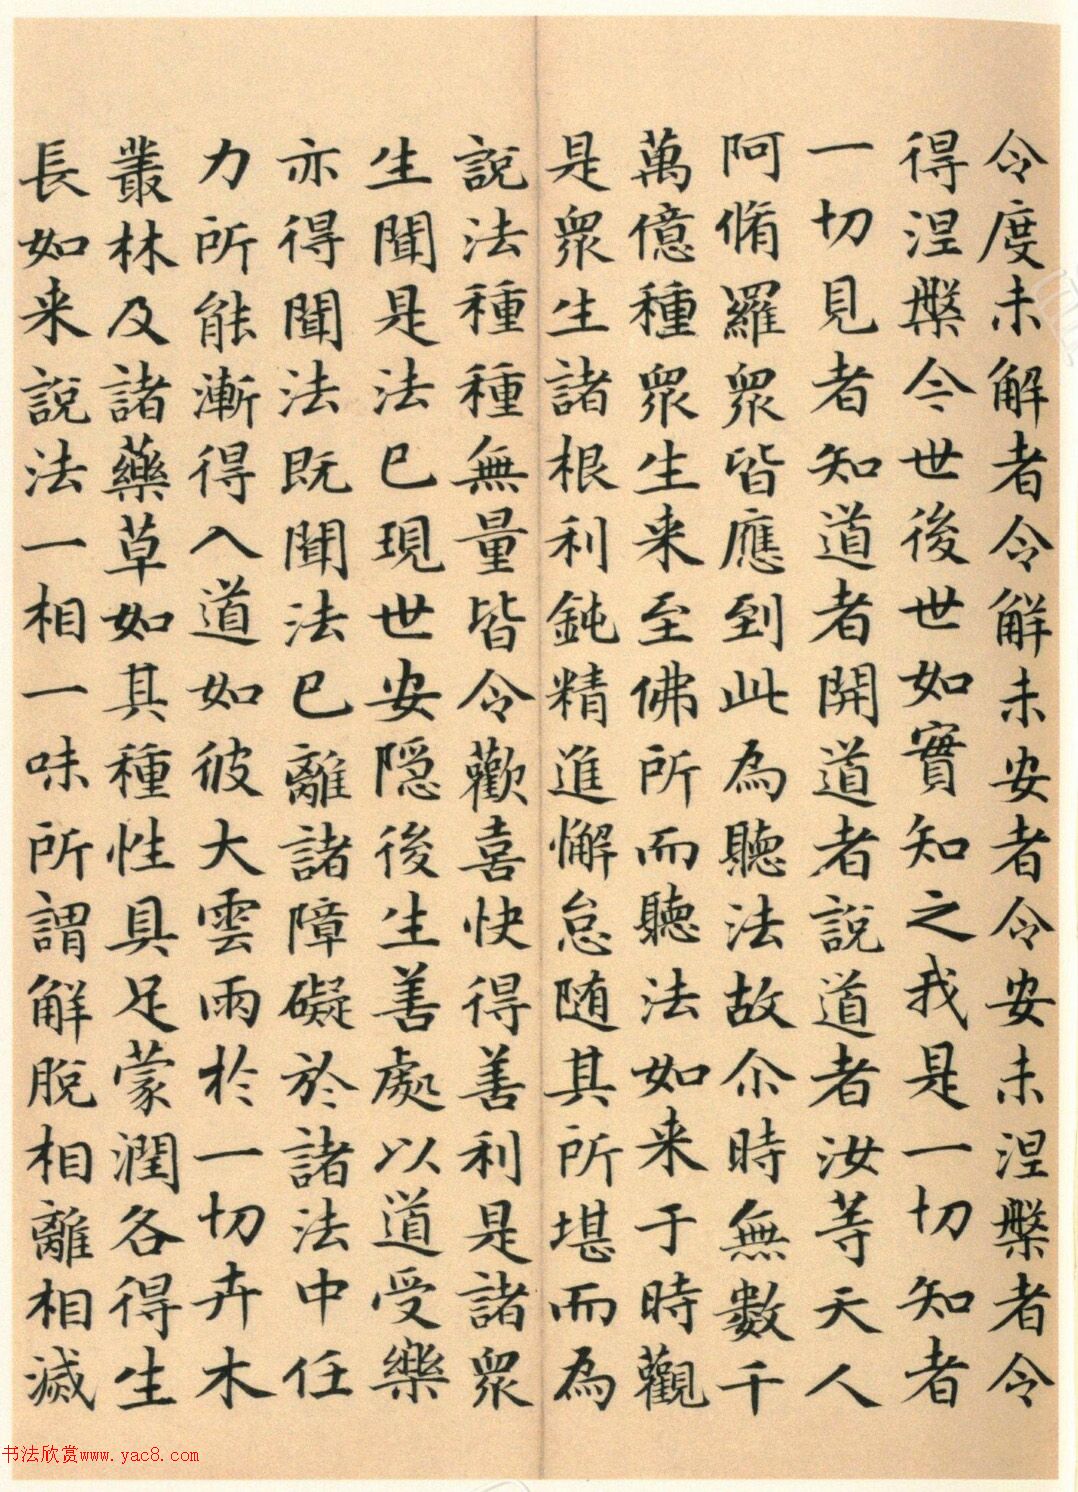 令度未解者令解未安者令安未涅槃者令
得涅槃今世後世如實知之我是一切知者
一切見者知道者開道者說道者汝等天人
阿脩羅眾皆應到此為聽法故尒時無數千
萬億種眾生来至佛所而聽法如来于時觀
是眾生諸根利鈍精進懈怠随其所堪而為
說法種種無量皆令歡喜快得善利是諸眾
生聞是法已現世安隠後生善處以道受樂
亦得聞法既聞法已離諸障礙於諸法中任
力所能漸得入道如彼大雲雨於一切卉木
叢林及諸藥草如其種性具足蒙潤各得生
長如来說法一相一味所謂解脫相離相滅
书法欣赏www.yac8.com